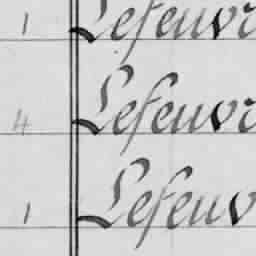 1 Lefeuvr
4 Lefeuvr
1 Lefeuv